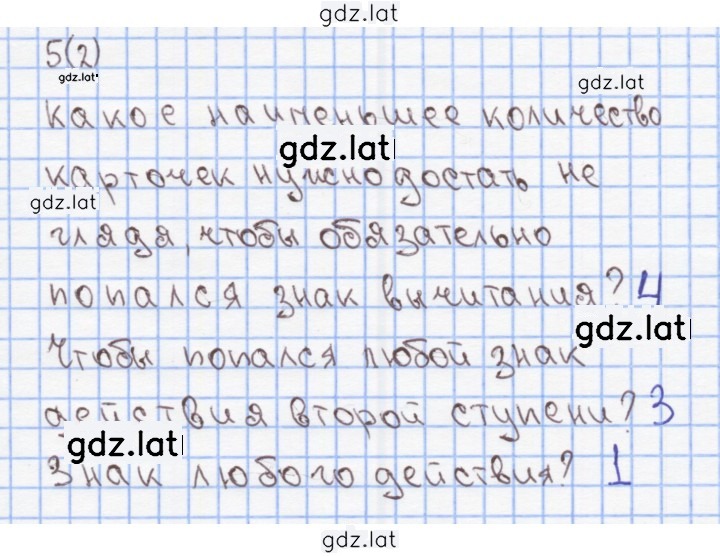 gdz.lat
5(2)
gdz.lat
gdz.lat
какое наименьшее количество
gdz.lat
карточек нужно достать не
gdz.lat
глядя, чтобы обязательно
попался знак вычитания? 4
gdz.lat
Чтобы попался любой знак
действия второй ступени? 3
gdz.lat
Знак любого действия? 1
gdz.lat